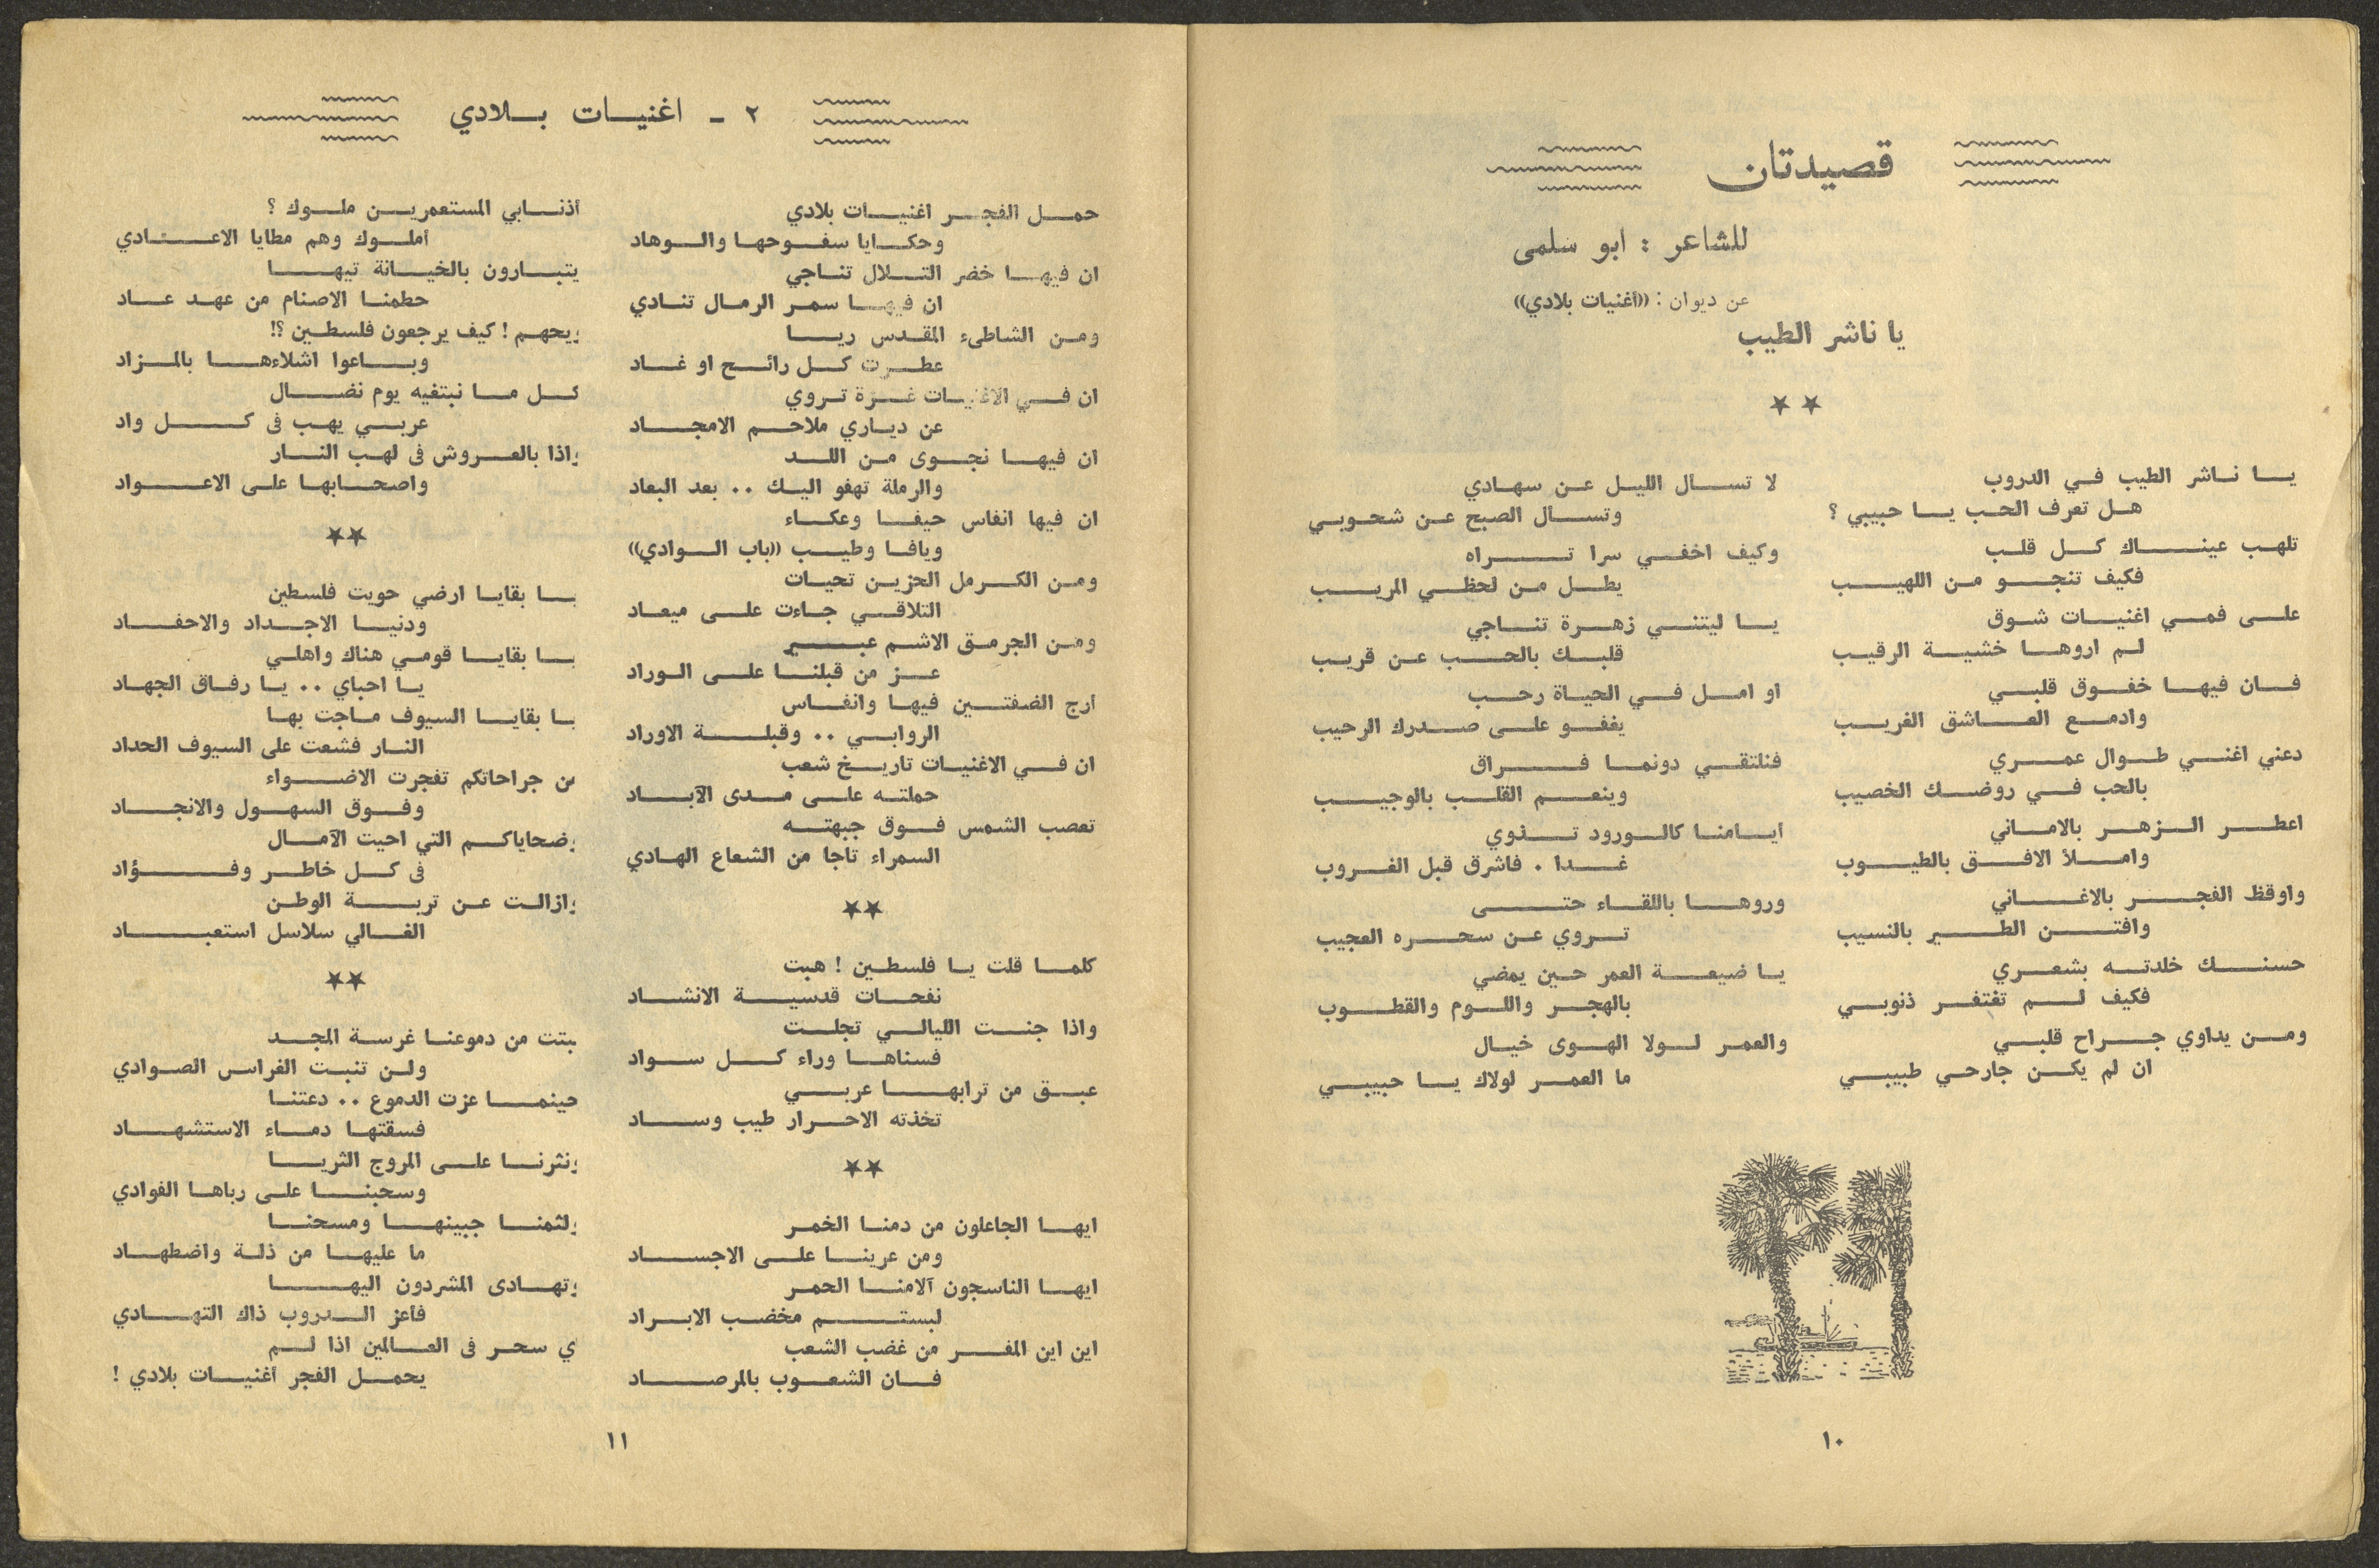 قصيدتان
للشاعر : ابو سلمى
عن ديوان : ((أغنيات بلادي))
يا ناشر الطيب
يا ناشر الطيب في الدروب
هل تعرف الحب يا حبيبي ؟
تلهب عيناك كل قلب
فكيف تنجو من اللهيب
على فمي اغنيات شوق
لم اروها خشية الرقيب
فان فيها خفوق قلبي
وادمع العاشق الغريب
دعني اغني طوال عمري
بالحب في روضك الخصيب
اعطر الزهر بالاماني
واملأ الافق بالطيوب
واوقظ الفجر بالاغاني
وافتن الطير بالنسيب
حسنك خلدته بشعري
فكيف لم تغتفر ذنوبي
ومن يداوي جراح قلبي
ان لم يكن جارحي طبيبي
لا تسال الليل عن سهادي
وتسأل الصبح عن شحوبي
وكيف اخفي سرا تراه
يطل من لحظي المريب
يا ليتني زهرة تناجي
قلبك بالحب عن قريب
او امل في الحياة رحب
يغفو على صدرك الرحيب
فنلتقي دونما فراق
وينعم القلب بالوجيب
ايامنا كالورود تذوي
غدا . فاشرق قبل الغروب
وروها باللقاء حتى
تروي عن سحره العجيب
يا ضيعة العمر حين يمضي
بالهجر واللوم والقطوب
والعمر لولا الهوى خيال
ما العمر لولاك يا حبيبي
١٠
٢ - اغنيات بلادي
حمل الفجر اغنيات بلادي
وحكايا سفوحها والوهاد
ان فيها خضر التلال تناجي
ان فيها سمر الرمال تنادي
ومن الشاطىء المقدس ريا
عطرت كل رائح او غاد
ان في الاغنيات غزة تروي
عن دياري ملاحم الامجاد
ان فيها نجوى من اللد
والرملة تهفو اليك .. بعد البعاد
ان فيها انفاس حيفا وعكاء
ويافا وطيب ((باب الوادي))
ومن الكرمل الحزين تحيات
التلاقي جاءت على ميعاد
ومن الجرمق الاشم عبير
عز من قبلنا على الوراد
ارج الضفتين فيها وانفاس
الروابي .. وقبلة الاوراد
ان في الاغنيات تاريخ شعب
حملته على مدى الآباد
تعصب الشمس فوق جبهته
السمراء تاجا من الشعاع الهادي
كلما قلت يا فلسطين ! هبت
نفحات قدسية الانشاد
واذا جنت الليالي تجلت
فسناها وراء كل سواد
عبق من ترابها عربي
تخذته الاحرار طيب وساد
ايها الجاعلون من دمنا الخمر
ومن عرينا على الاجساد
ايها الناسجون آلامنا الحمر
لبستم مخضب الابراد
اين اين المفر من غضب الشعب
فان الشعوب بالمرصاد
أذنابي المستعمرين ملوك ؟
أملوك وهم مطايا الاعادي
يتبارون بالخيانة تيها
حطمنا الاصنام من عهد عاد
ويحهم ! كيف يرجعون فلسطين ؟!
وباعوا اشلاءها بالمزاد
كل ما نبتغيه يوم نضال
عربي يهب فى كل واد
واذا بالعروش فى لهب النار
واصحابها على الاعواد
يا بقايا ارضي حويت فلسطين
ودنيا الاجداد والاحفاد
يا بقايا قومي هناك واهلي
يا احباي .. يا رفاق الجهاد
يا بقايا السيوف ماجت بها
النار فشعت على السيوف الحداد
من جراحاتكم تفجرت الاضواء
وفوق السهول والانجاد
وضحاياكم التي احيت الآمال
فى كل خاطر وفؤاد
وازالت عن تربة الوطن
الغالي سلاسل استعباد
نبتت من دموعنا غرسة المجد
ولن تنبت الغراس الصوادي
حينما عزت الدموع .. دعتنا
فسقتها دماء الاستشهاد
ونثرنا على المروج الثريا
وسحبنا على رباها الغوادي
ولثمنا جبينها ومسحنا
ما عليها من ذلة واضطهاد
وتهادى المشردون اليها
فأعز الدروب ذاك التهادي
اي سحر فى العالمين اذا لم
يحمل الفجر أغنيات بلادي !
١١